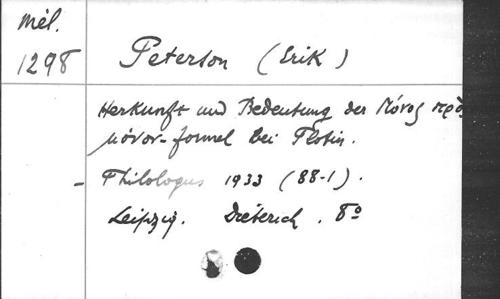 Mél.
1298
Peterson (Erik)
Herkunft und Bedeutung der Μόνος πρὸς
μόνον-formel bei Plotin.
- Philologus 1933 (88-1).
Leipzig. Dieterich. 8º